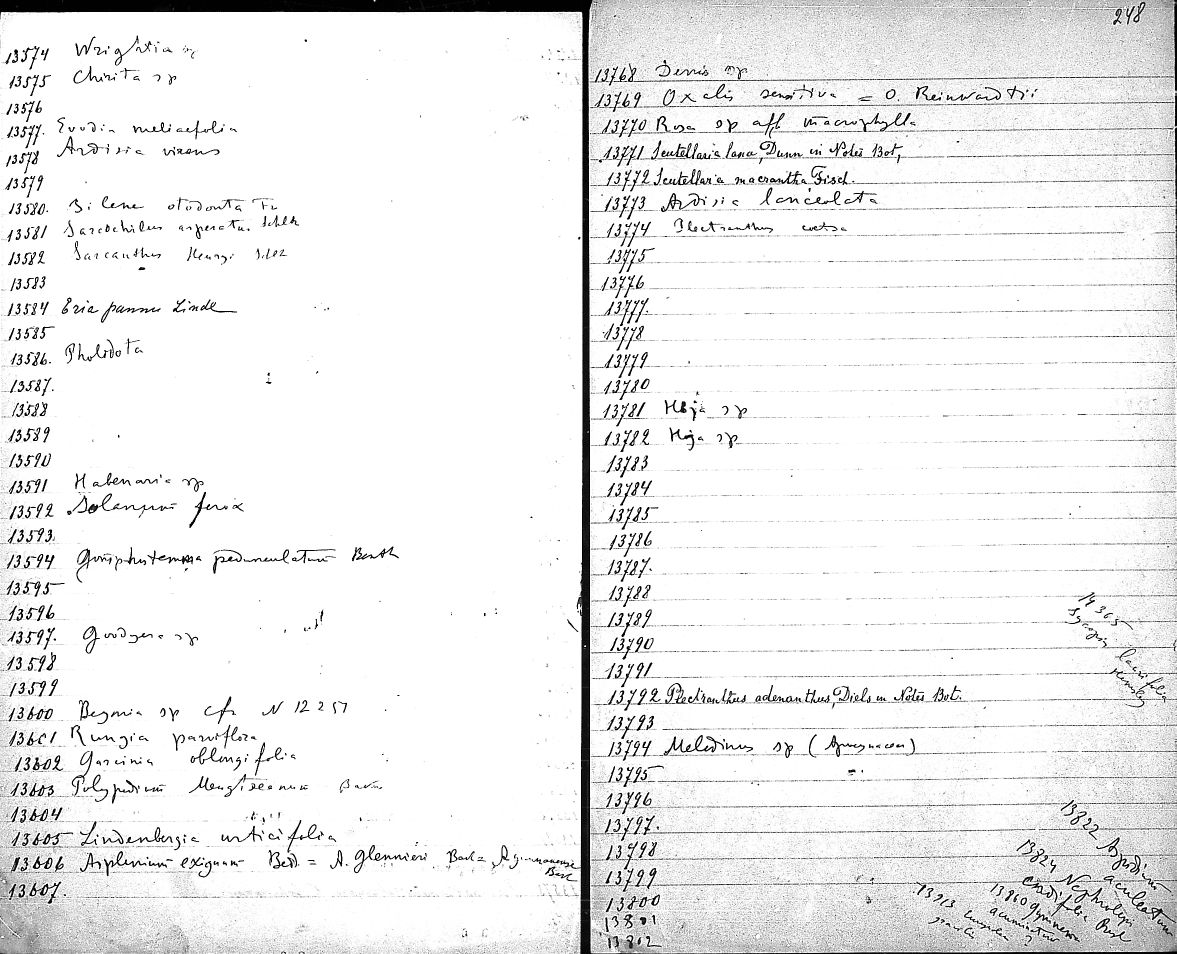 13574 Wrightia sp
13575 Chirita sp
13576
13577. Evodia meliaefolia
13578 Ardisia virens
13579
13580. Silene otodonta Fr
13581 Sarcochilus asperatus Schltr
13582 Sarcanthus Henryi Schltz
13583
13584 Eria pannea Lindl
13585
13586. Pholidota
13587.
13588
13589
13590
13591 Habenaria sp
13592 Solanum ferox
13593
13594 Gomphostemma pedunculatum Benth
13595
13596
13597. Goodyera sp
13598
13599
13600 Begonia sp cfr N 12251
13601 Rungia parviflora
13602 Garcinia oblongifolia
13603 Polypodium Mengtzeanum Bak
13604
13605 Lindenbergia urticifolia
13606 Asplenium exiguum Bedd = A. Glennieri Bak = A yunnanense Bak
13607.
248
13768 Derris sp
13769 Oxalis sensitiva = O. Reinwardtii
13770 Rosa sp aff macrophylla
13771 Scutellaria lana, Dunn in Notes Bot,
13772 Scutellaria macrantha Fisch.
13773 Ardisia lanceolata
13774 Plectranthus coetsa
13775
13776
13777.
13778
13779
13780
13781 Hoja sp
13782 Hoja sp
13783
13784
13785
13786
13787.
13788
13789
13790
13791
13792 Plectranthus adenanthus, Diels in Notes Bot.
13793
13794 Melodinus sp (Apocynaceae)
13795
13796
13797.
13798
13799
13800
13801
13802
14365
Sycopsis laurifolia
Hemsley
13822 Aspidium aculeatum
13824 Nephrolepis cordifolia Presl
13860 Gymnema acuminatum
13913